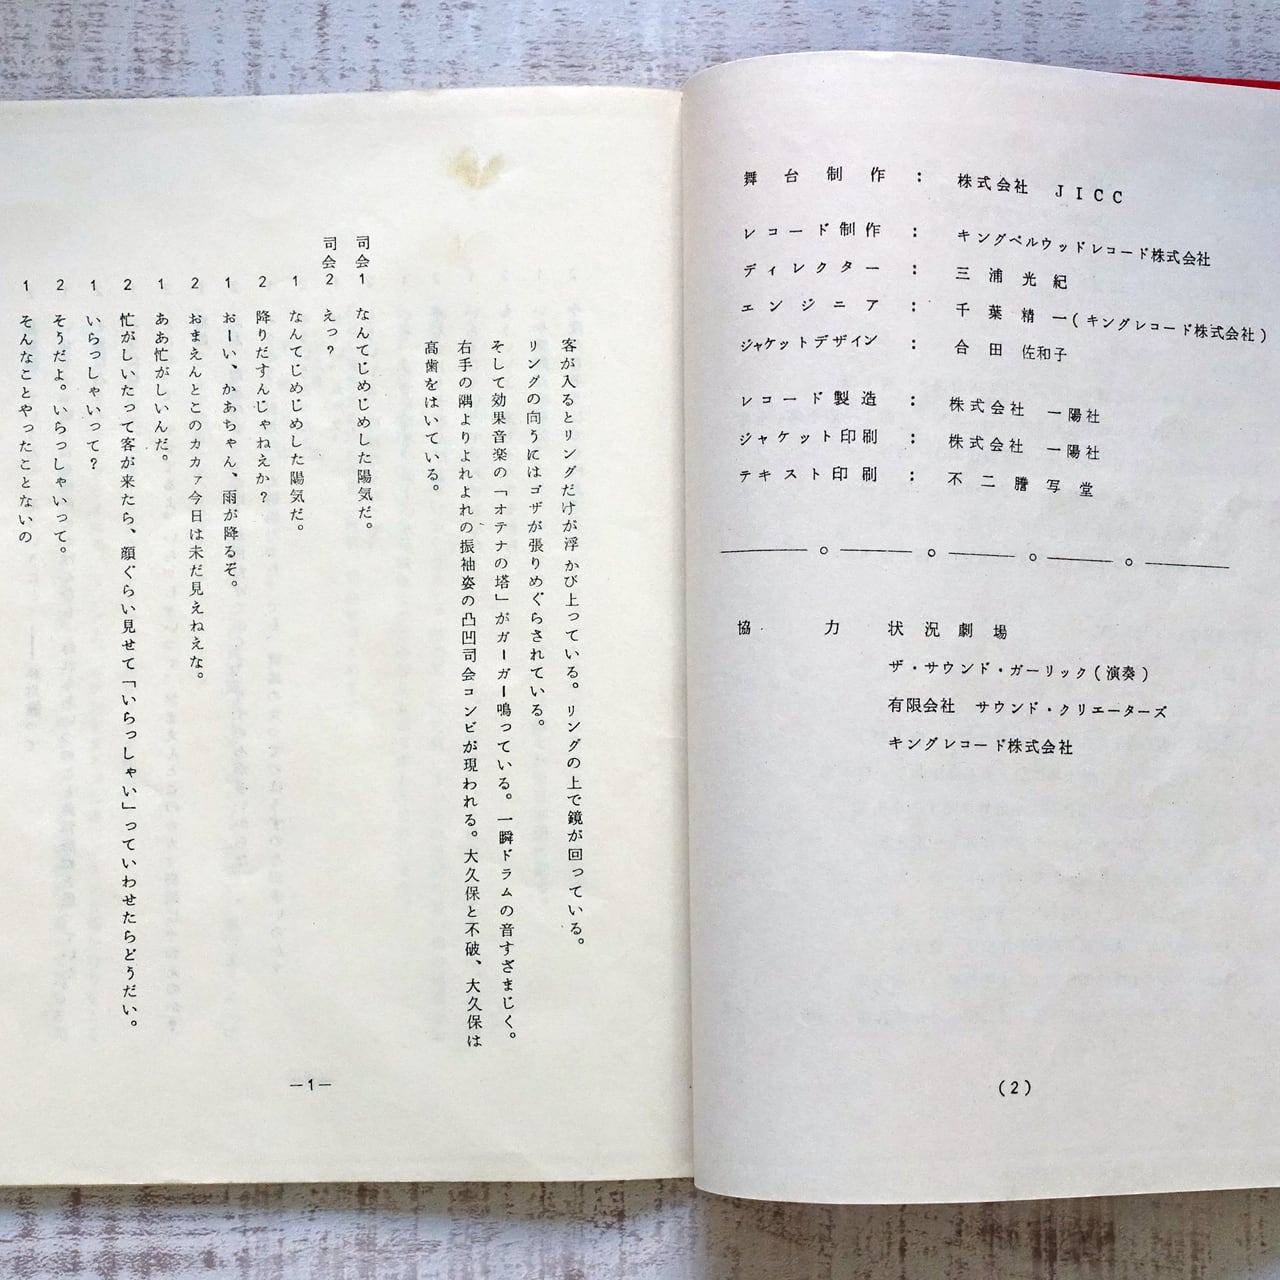 舞台制作： 株式会社 JICC
レコード制作： キングベルウッドレコード株式会社
ディレクター： 三浦光紀
エンジニア： 千葉精一(キングレコード株式会社)
ジャケットデザイン： 合田佐和子
レコード製造： 株式会社 一陽社
ジャケット印刷： 株式会社 一陽社
テキスト印刷： 不二謄写堂
協力 状況劇場
ザ・サウンド・ガーリック(演奏)
有限会社 サウンド・クリエーターズ
キングレコード株式会社
(2)
客が入るとリングだけが浮かび上っている。リングの上で鏡が回っている。
リングの向うにはゴザが張りめぐらされている。
そして効果音楽の「オテナの塔」がガーガー鳴っている。一瞬ドラムの音すざまじく。
右手の隅よりよれよれの振袖姿の凸凹司会コンビが現われる。大久保と不破、大久保は
高歯をはいている。
司会1 なんてじめじめした陽気だ。
司会2 えっ？
1 なんてじめじめした陽気だ。
2 降りだすんじゃねえか？
1 おーい、かあちゃん、雨が降るぞ。
2 おまえんとこのカカァ今日は未だ見えねえな。
1 ああ忙がしいんだ。
2 忙がしいたって客が来たら、顔ぐらい見せて「いらっしゃい」っていわせたらどうだい。
1 いらっしゃいって？
2 そうだよ。いらっしゃいって。
1 そんなことやったことないの
—1—